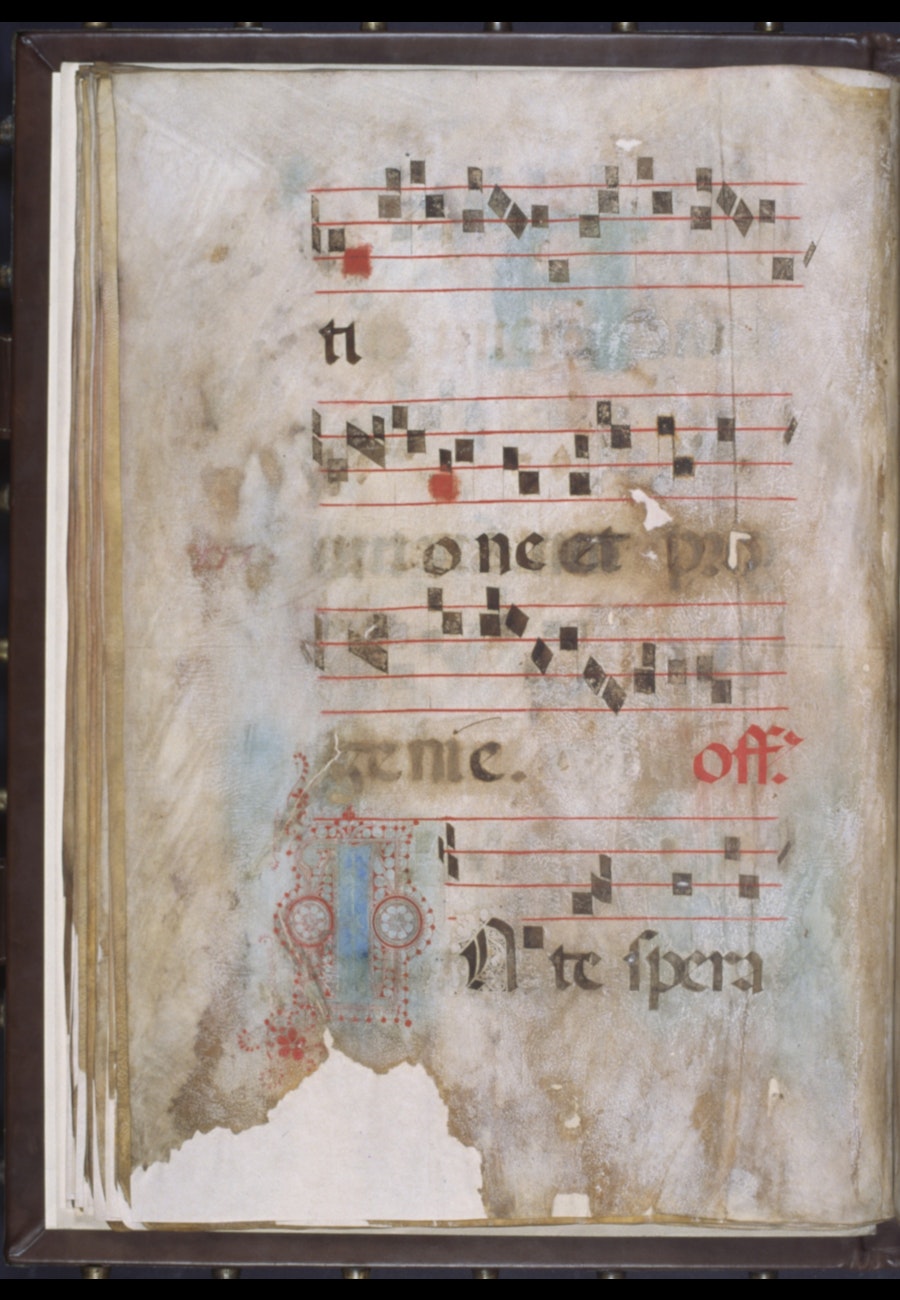 ti
one et pro
genie. off:
IN te spera